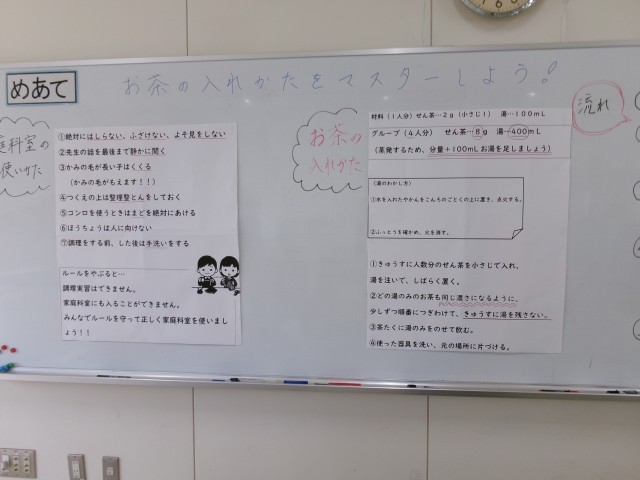 めあて
お茶の入れかたをマスターしよう!
庭科室の
使いかた
①絶対にはしらない、ふざけない、よそ見をしない
②先生の話を最後まで静かに聞く
③かみの毛が長い子はくくる
(かみの毛がもえます!!)
④つくえの上は整理整とんをしておく
⑤コンロを使うときはまどを絶対にあける
⑥ほうちょうは人に向けない
⑦調理をする前、した後は手洗いをする
ルールをやぶると…
調理実習はできません。
家庭科室にも入ることができません。
みんなでルールを守って正しく家庭科室を使いまし
ょう!!
お茶の
入れかた
材料(1人分)せん茶…2g(小さじ1) 湯…100mL
グループ(4人分) せん茶…8g 湯…400mL
(蒸発するため、分量+100mLお湯を足しましょう)
(湯のわかし方)
①水を入れたやかんをこんろのごとくの上に置き、点火する。
②ふっとうを確かめ、火を消す。
①きゅうすに人数分のせん茶を小さじで入れ、
湯を注いで、しばらく置く。
②どの湯のみのお茶も同じ濃さになるように、
少しずつ順番につぎわけて、きゅうすに湯を残さない。
③茶たくに湯のみをのせて飲む。
④使った器具を洗い、元の場所に片づける。
流れ